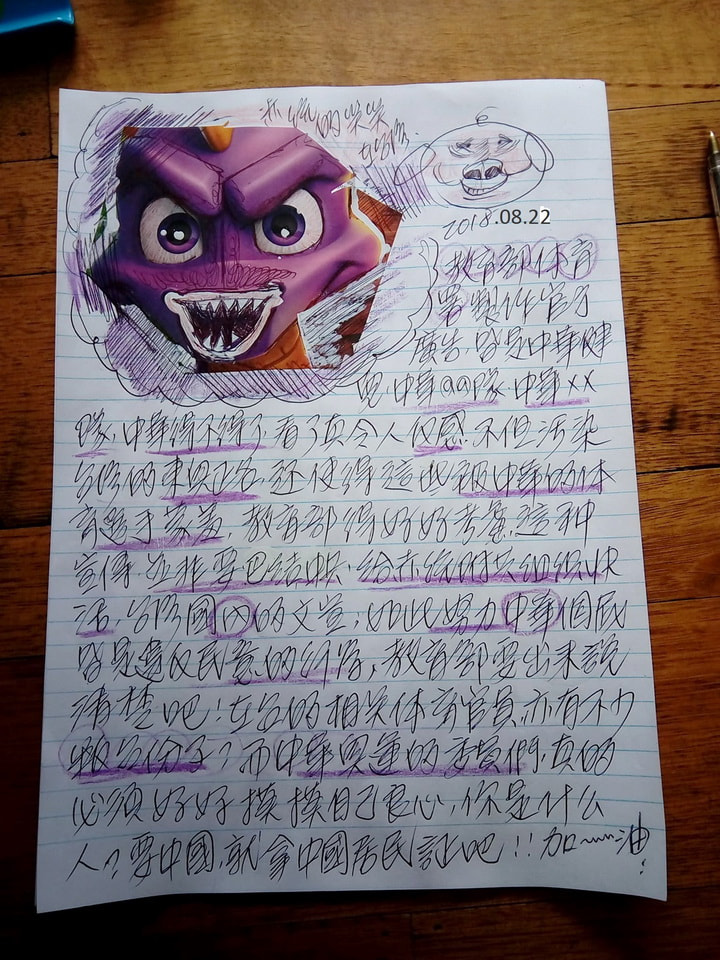 在台灣.
2018.08.22
教育部体育
署製作官方
廣告,皆是中華健
兒,中華QQ隊,中華XX
隊,中華得不得了,看了真令人反感,不但污染
台灣的東奧正名,还使得這些被中華的体
育選手蒙羞,教育部得好好考量,這种
宣傳,並非要巴結中共,給
活,台灣國內的文宣,如此努力中華個屁
皆是違反民意的行為,教育部要出來說
清楚吧!在台的相关体育官員,亦有不少
叛台份子?而中華奧運的委員們,真的
必須好好摸摸自己良心,你是什么
人?要中國,就拿中國居民証吧!!加~~~油!